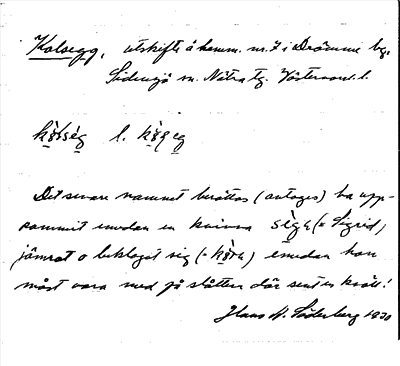 Kolsegg, utskifte å hemm. nr. 7 i Drömme by,
Sidensjö sn. Nätra tg. Västernorrl. l.
l.
Det senare namnet berättas (antages) ha upp-
kommit emedan en kvinna sèga (= Sigrid)
jämrat o beklagat sig (= kòra) emedan hon
måst vara med på slåtten där sent en kväll!
Hans H. Söderberg 1930